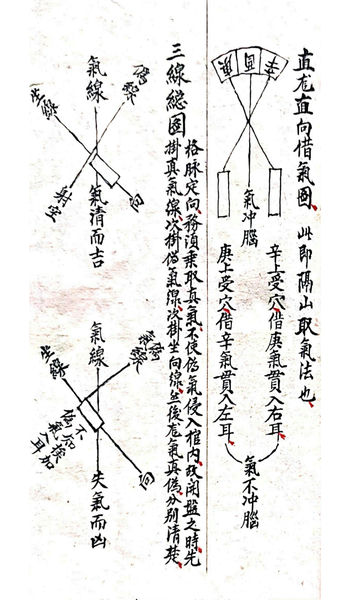 直龙直向借气圖 此即隔山取氣法也
辛
酉
庚
氣冲腦
辛上受穴借庚氣貫入右耳
庚上受穴借辛氣貫入左耳
氣不冲腦
三線總图
格脉定向務須乘取真氣不使偽氣侵入棺内故開盤之時先
掛真氣線次掛偽氣線次掛坐向線然後龙氣真偽分别清楚
偽線
氣線
坐線
向
射空
氣清而吉
偽氣線
氣線
坐線
向
失氣而凶